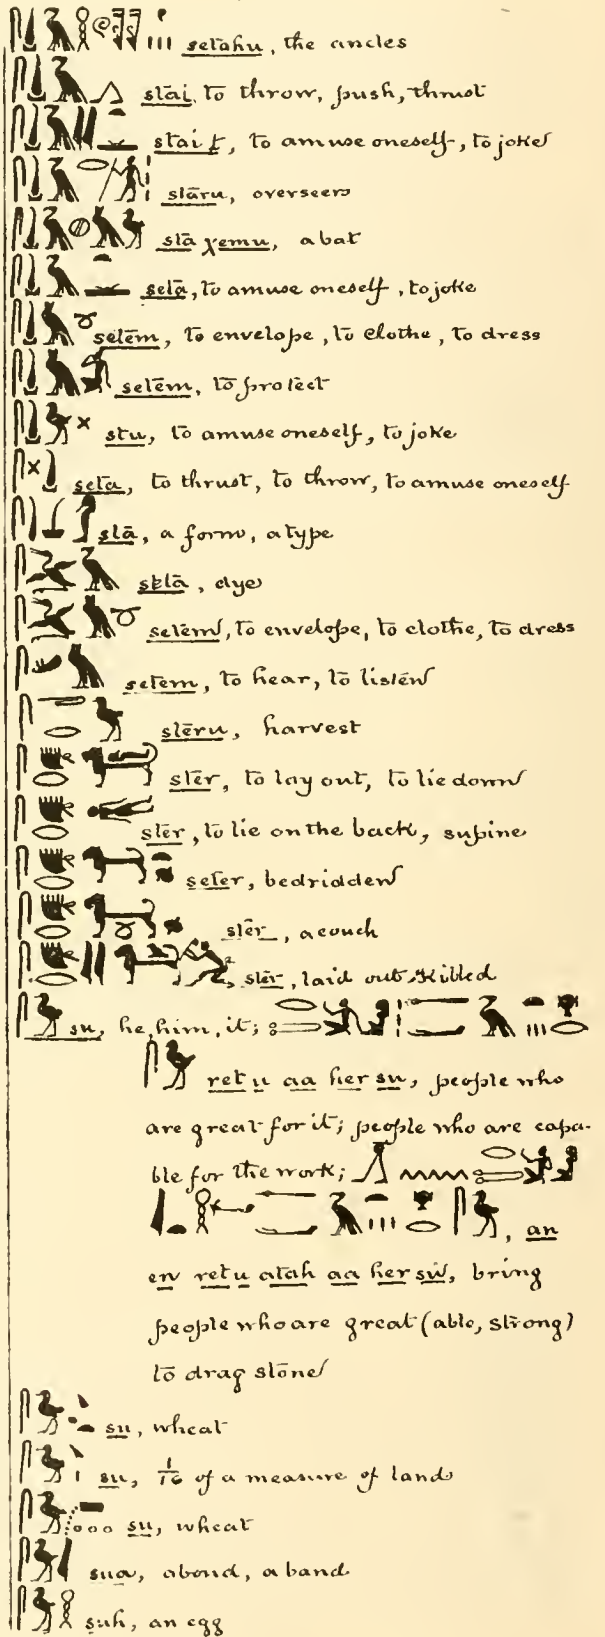 setahu, the ancles
stai, to throw, push, thrust
stai t, to amuse oneself, to joke
staru, overseers
stā χemu, a bat
setā, to amuse oneself, to joke
setēm, to envelope, to clothe, to dress
setēm, to protect
stu, to amuse oneself, to joke
seta, to thrust, to throw, to amuse oneself
stā, a form, a type
sktā, dye
setēm, to envelope, to clothe, to dress
setem, to hear, to listen
stēru, harvest
stēr, to lay out, to lie down
stēr, to lie on the back, supine
seter, bedridden
stēr, a couch
stēr, laid out, killed
su, he, him, it;
ret u aa her su, people who
are great for it; people who are capa-
ble for the work;
, an
en ret u atah aa her su, bring
people who are great (able, strong)
to drag stone
su, wheat
su, 1/16 of a measure of land
su, wheat
sua, a bond, a band
suh, an egg